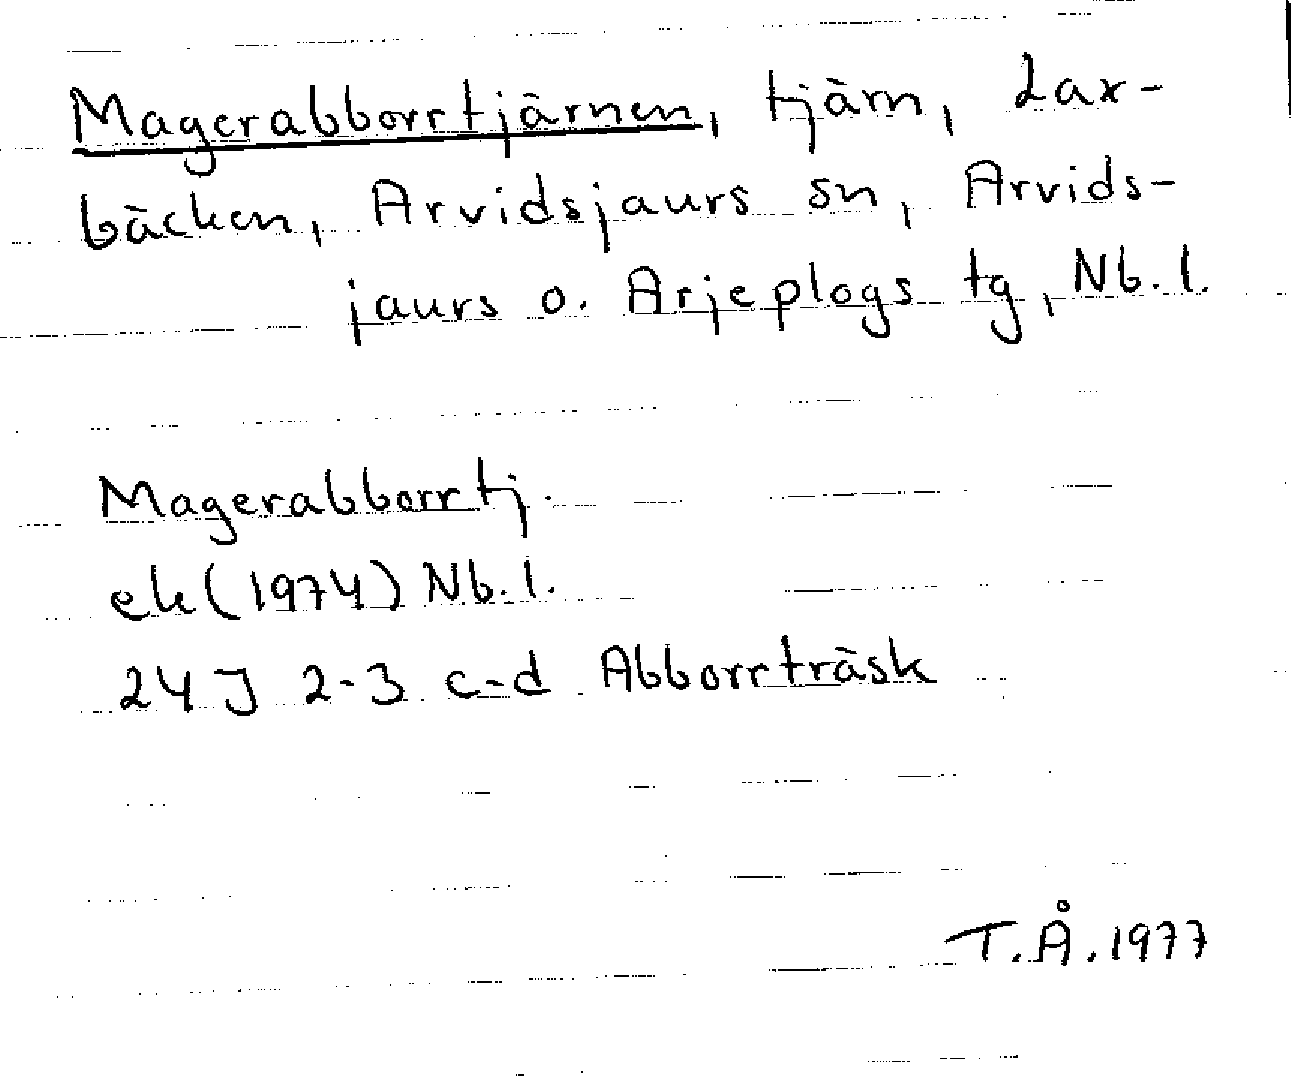 Magerabborrtjärnen, tjärn, Lax-
bäcken, Arvidsjaurs sn, Arvids-
jaurs o. Arjeplogs tg, Nb. l.
Magerabborrtj.
ek (1974) Nb. l.
24 J 2-3 c-d Abborrträsk
T.Å. 1977